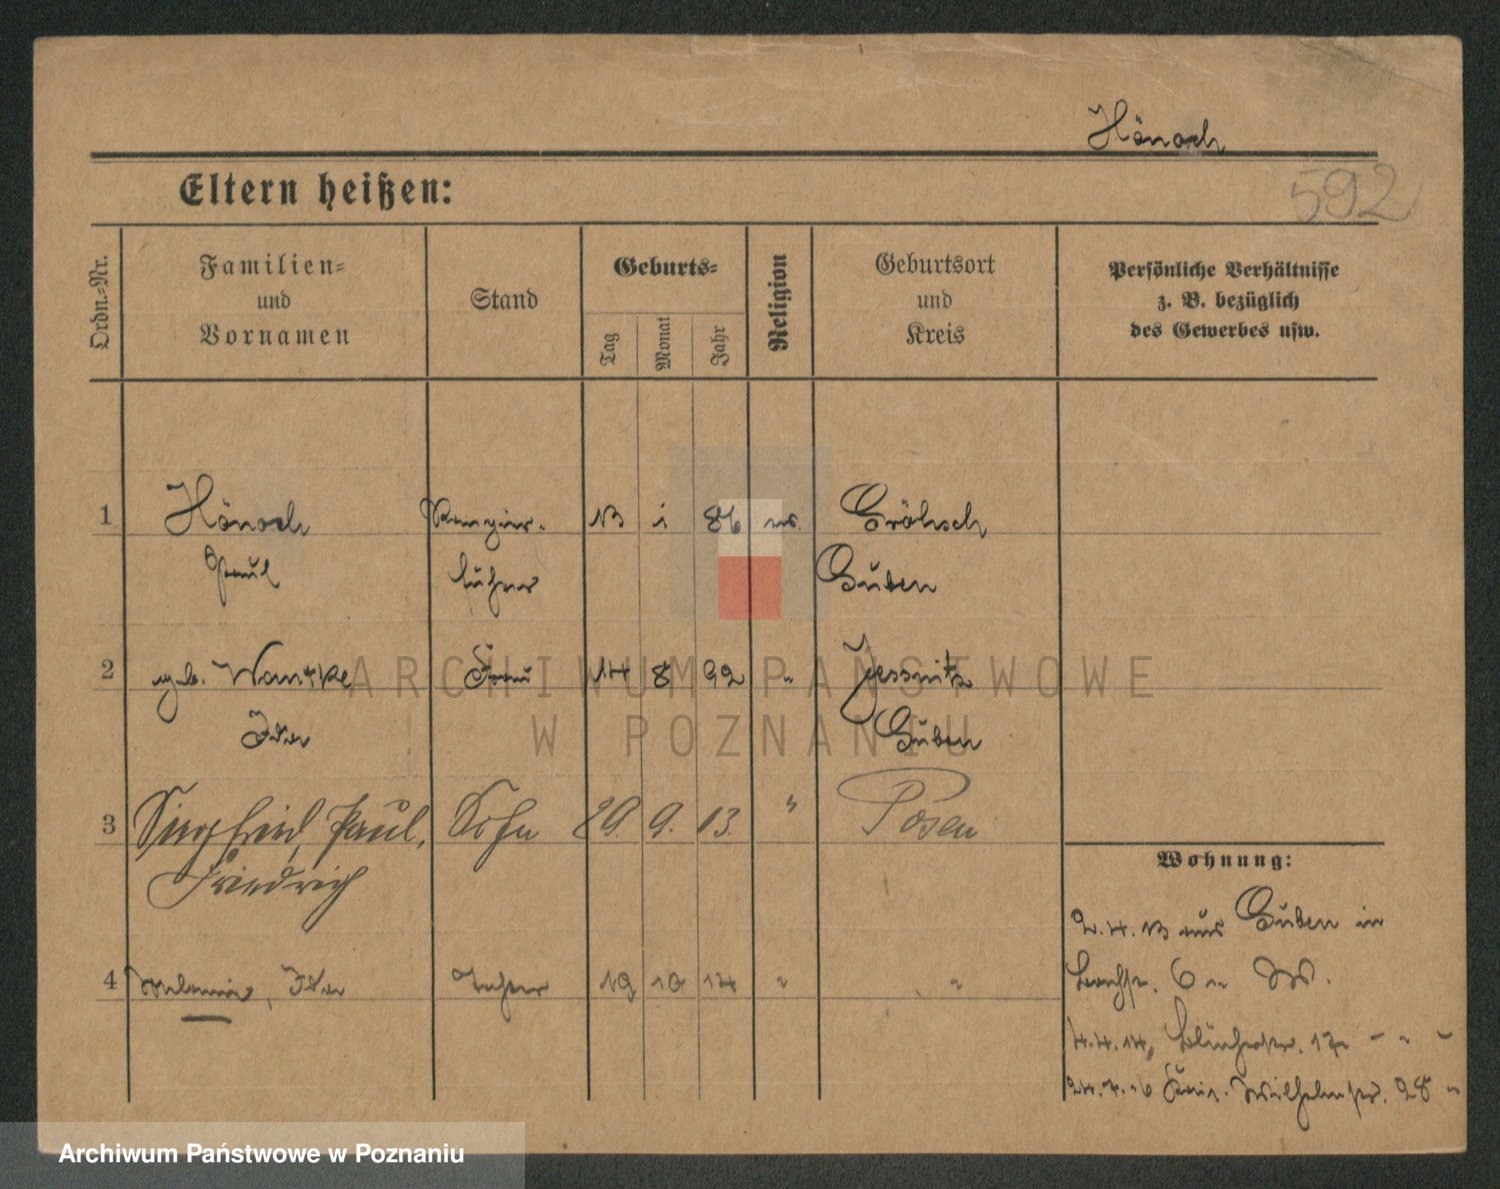 Hönoch
592
Eltern heißen:
Ordn.-Nr.
Familien-
und
Vornamen
Stand
Geburts-
Tag
Monat
Jahr
Religion
Geburtsort
und
Kreis
Persönliche Verhältnisse
z. B. bezüglich
des Gewerbes usw.
1 Hönoch Rangier- 13 1 86 ev. Gröbsch
Paul führer Guben
2 geb. Frau 14 8 92 " Jessnitz
Ida Guben
3 Siegfried, Paul, Sohn 29. 9. 13. " Posen
Friedrich
4 Melanie, Ida Tochter 19 10 14 " "
Wohnung:
2.4.13 aus Guben in
6
4.4.14, 17
Wilhelmstr. 28 "
ARCHIWUM PAŃSTWOWE
W POZNANIU
Archiwum Państwowe w Poznaniu